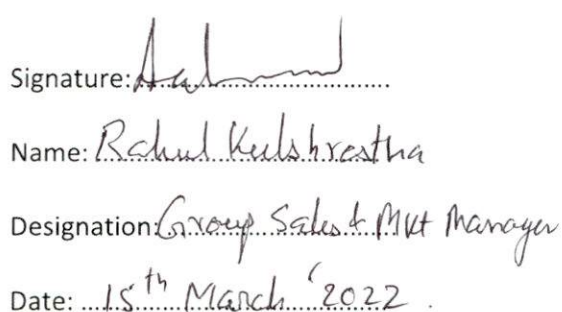 Signature:..............................
Name: Rahul Kulshrestha
Designation: Group Sales & Mkt Manager
Date: ....15th March '2022 .